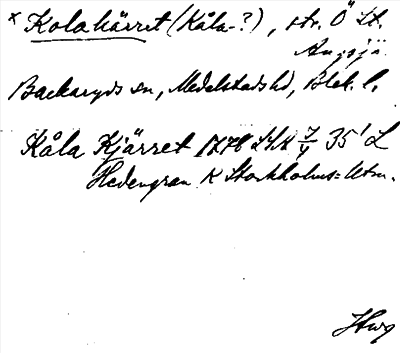 x Kolakärret (Kåla-?), str. Ö St.
Angsjö
Backaryds sn, Medelstads hd, Blek. l.
Kåla Kjärret 1776 LSA 7/4 35' L
Hedengran K Stockholms=